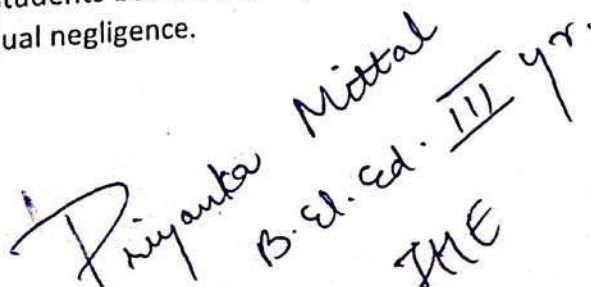 students
ual negligence.
Priyanka Mittal
B.El.Ed. III yr.
IHE